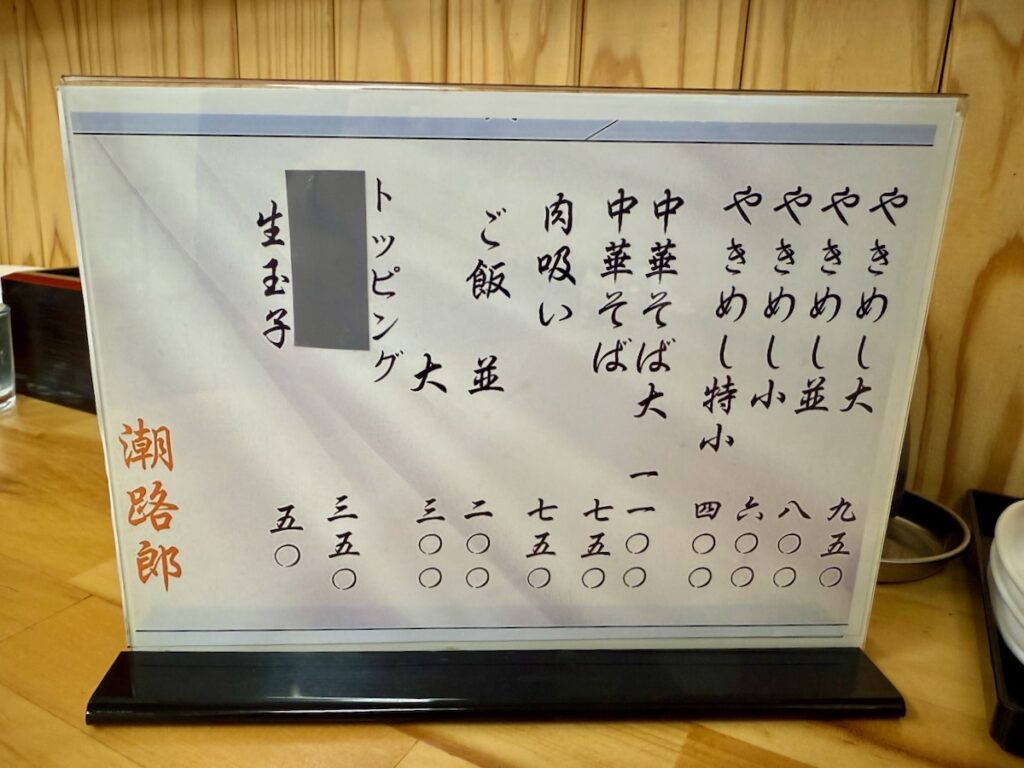 やきめし大 九五〇
やきめし並 八〇〇
やきめし小 六〇〇
やきめし特小 四〇〇
中華そば大 一一〇〇
中華そば 七五〇
肉吸い 七五〇
ご飯 並 二〇〇
大 三〇〇
トッピング
三五〇
生玉子 五〇
潮路郎